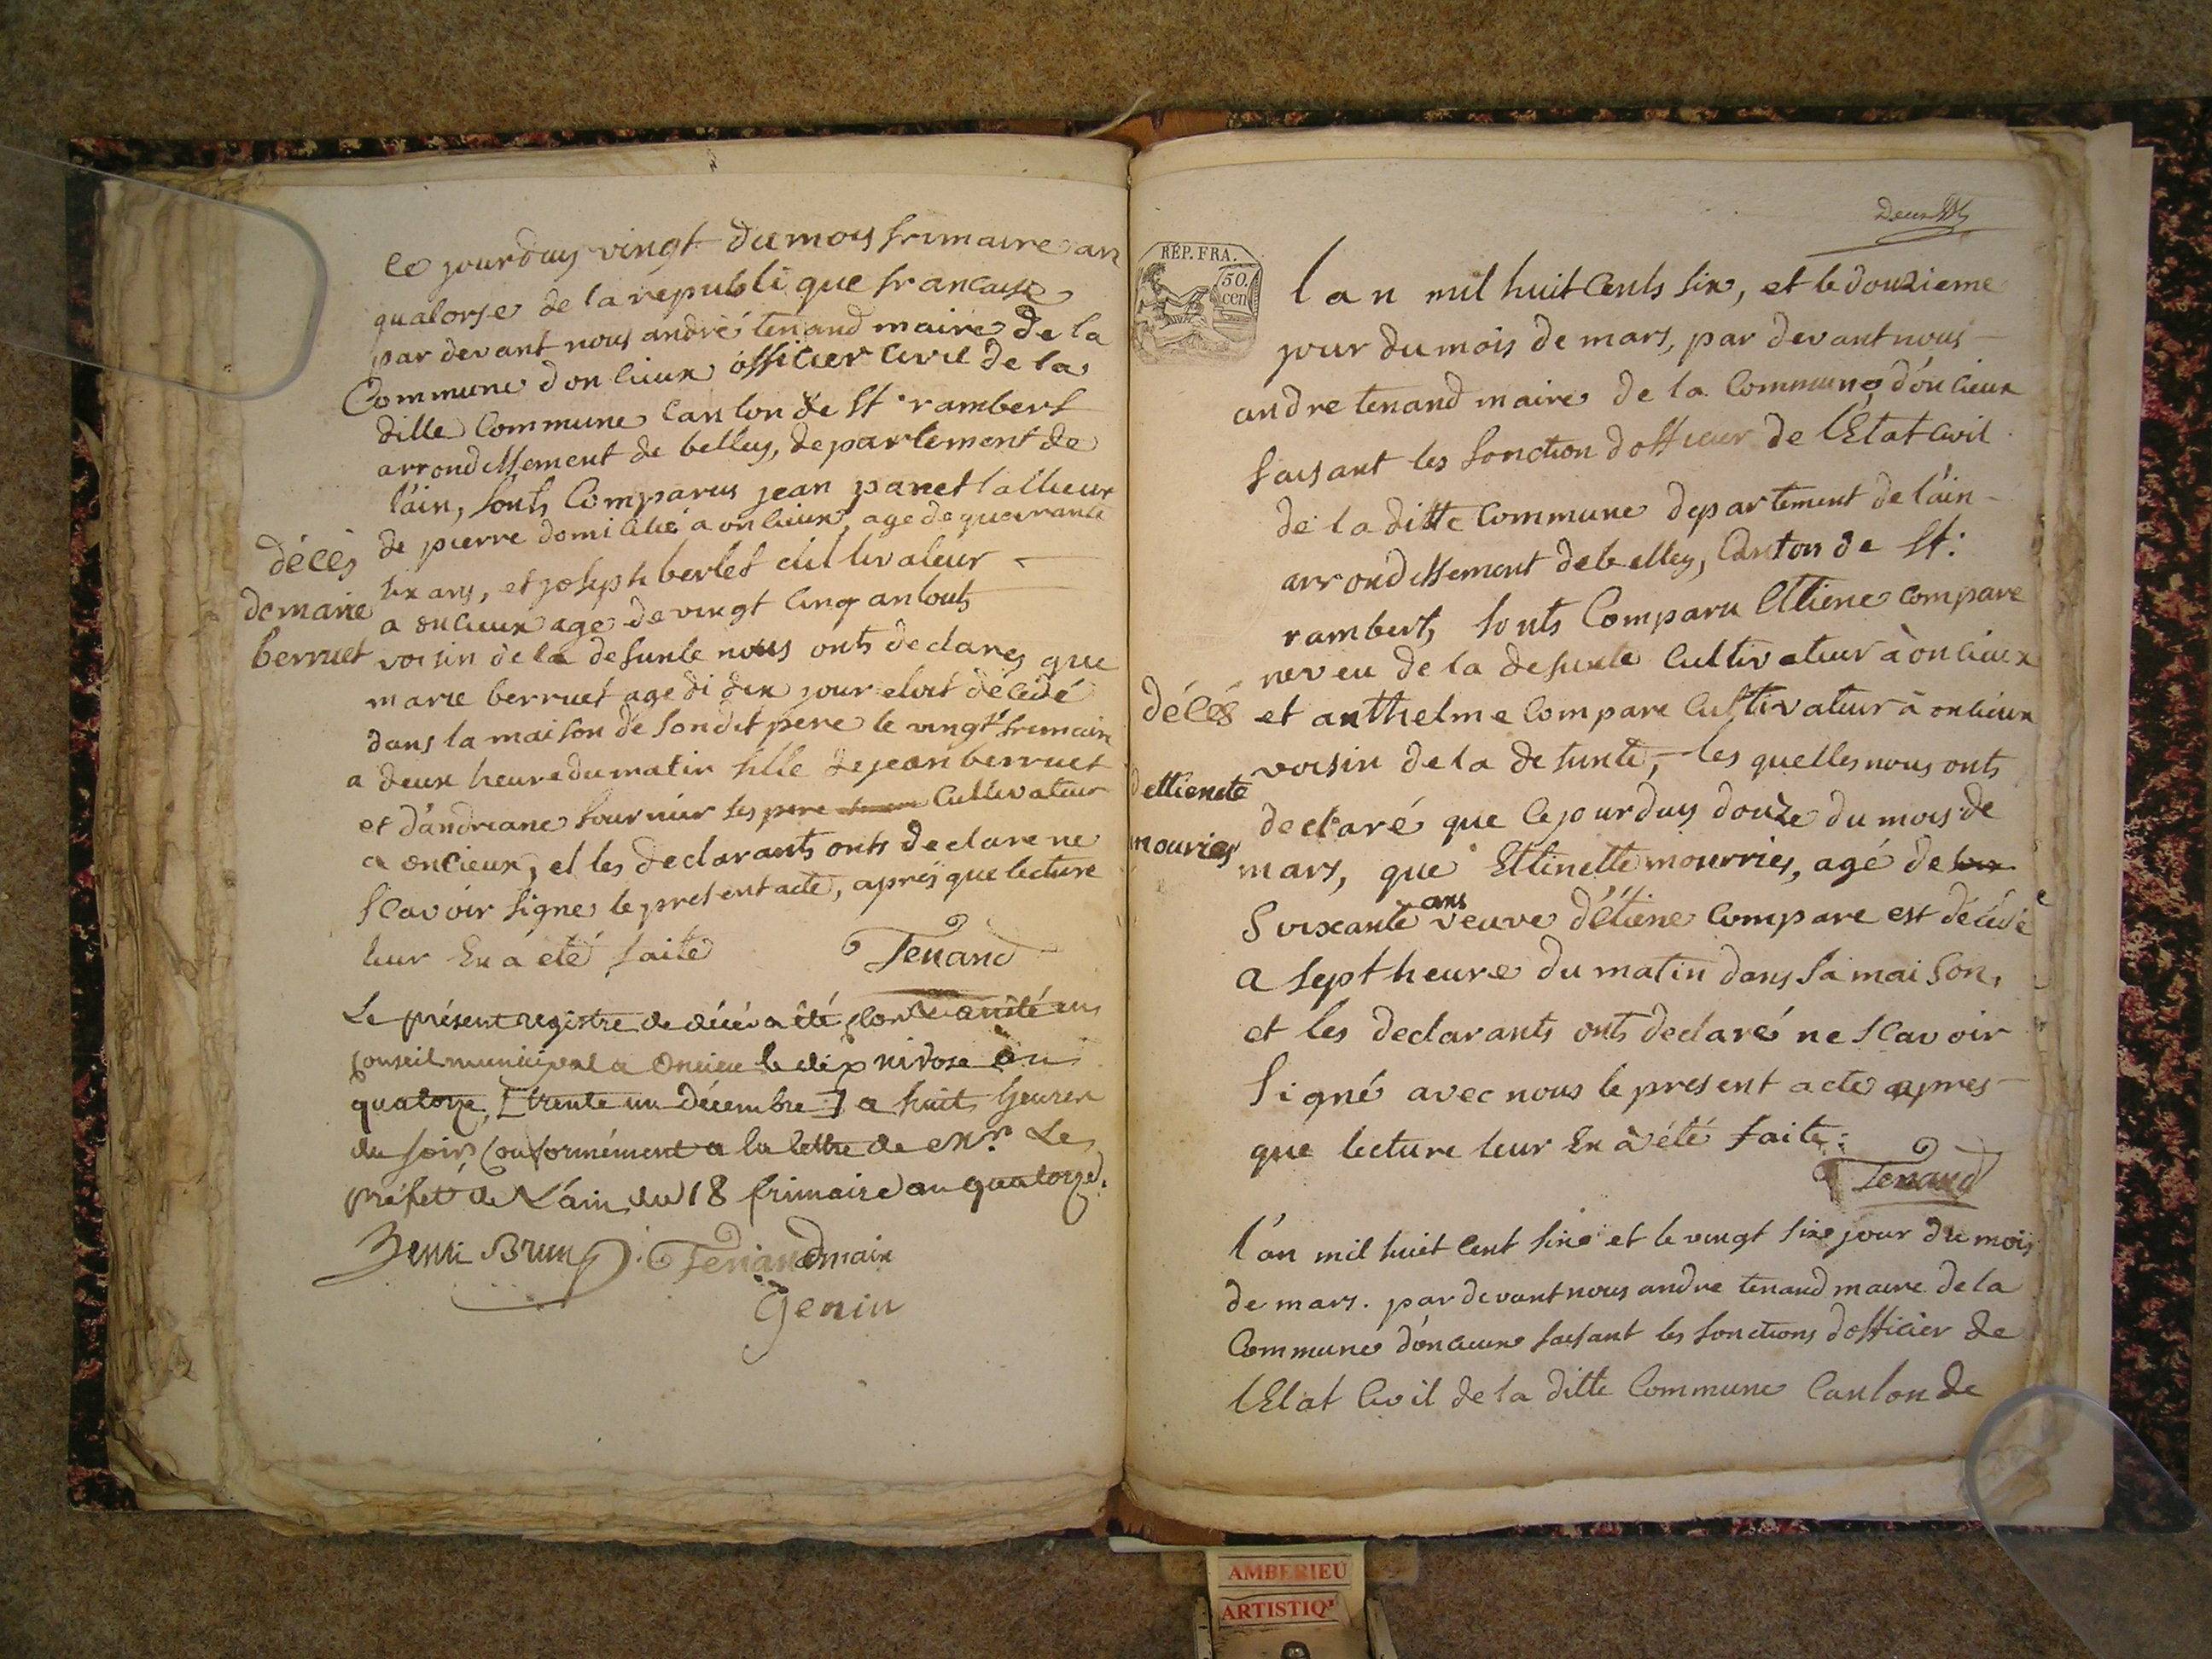 ce jourduy vingt du mois frimaire an
quatorse de la république francaise
par devant nous andré tenand maire de la
Commune d'on cieux officier civil de la
ditte Commune Canton de St. rambert
arrondissement de belley, departement de
l'ain, sonts Comparus jean panet tallieur
de pierre domicilié a oncieux, age de quarante
six ans, et joseph berlet cultivateur
a oncieux age de vingt cinq an touts
voisin de la defunte nous onts declares que
marie berruet age di dix jour etoit décédé
dans la maison de son dit pere le vingt frimaire
a deux heure du matin fille de jean berruet
et d'andreane fournier ses pere Cultivateur
a oncieux, et les declarants onts declare ne
scavoir signe le present acte, après que lecture
leur En a eté faite Tenand
décès
de marie
berruet
Le présent registre de décès a été clos et arrêté en
conseil municipal a Oncieu le dix nivose an
quatorze, [trente un Décembre] a huit heures
du soir, Conformément a la lettre de Mr. Le
préfet de L'ain, du 18 frimaire an quatorze.
Brun Tenand maire
Genin
RÉP. FRA.
50.
cen
l an mil huit Cents six, et le douzieme
jour du mois de mars, par devant nous
andre tenand maire de la Commune d'on cieux
faisant les fonction dofficier de l'Etat Civil
de la ditte Commune departement de l'ain
arrondissement de belley, Canton de St:
rambert, sonts Comparu Ettiene compare
neveu de la defunte Cultivateur à oncieux
et anthelme Compare Cultivateur à oncieux
voisin de la defunte, les quelles nous onts
declaré que ce jourduy douze du mois de
mars, que Ettinette mourries, agé de
soixante ans veuve d'étiene Compare est décédé
a sept heure du matin dans sa maison,
et les declarants onts declaré ne scavoir
signé avec nous le present acte apres
que lecture leur En à été faite:
Tenand
décés
dettienete
mouries
l'an mil huit Cent six et le vingt six jour du mois
de mars. par devant nous andre tenand maire de la
Commune d'oncieux faisant les fonctions dofficier de
l'Etat Civil de la ditte Commune Canton de
AMBERIEU
ARTISTIQ'